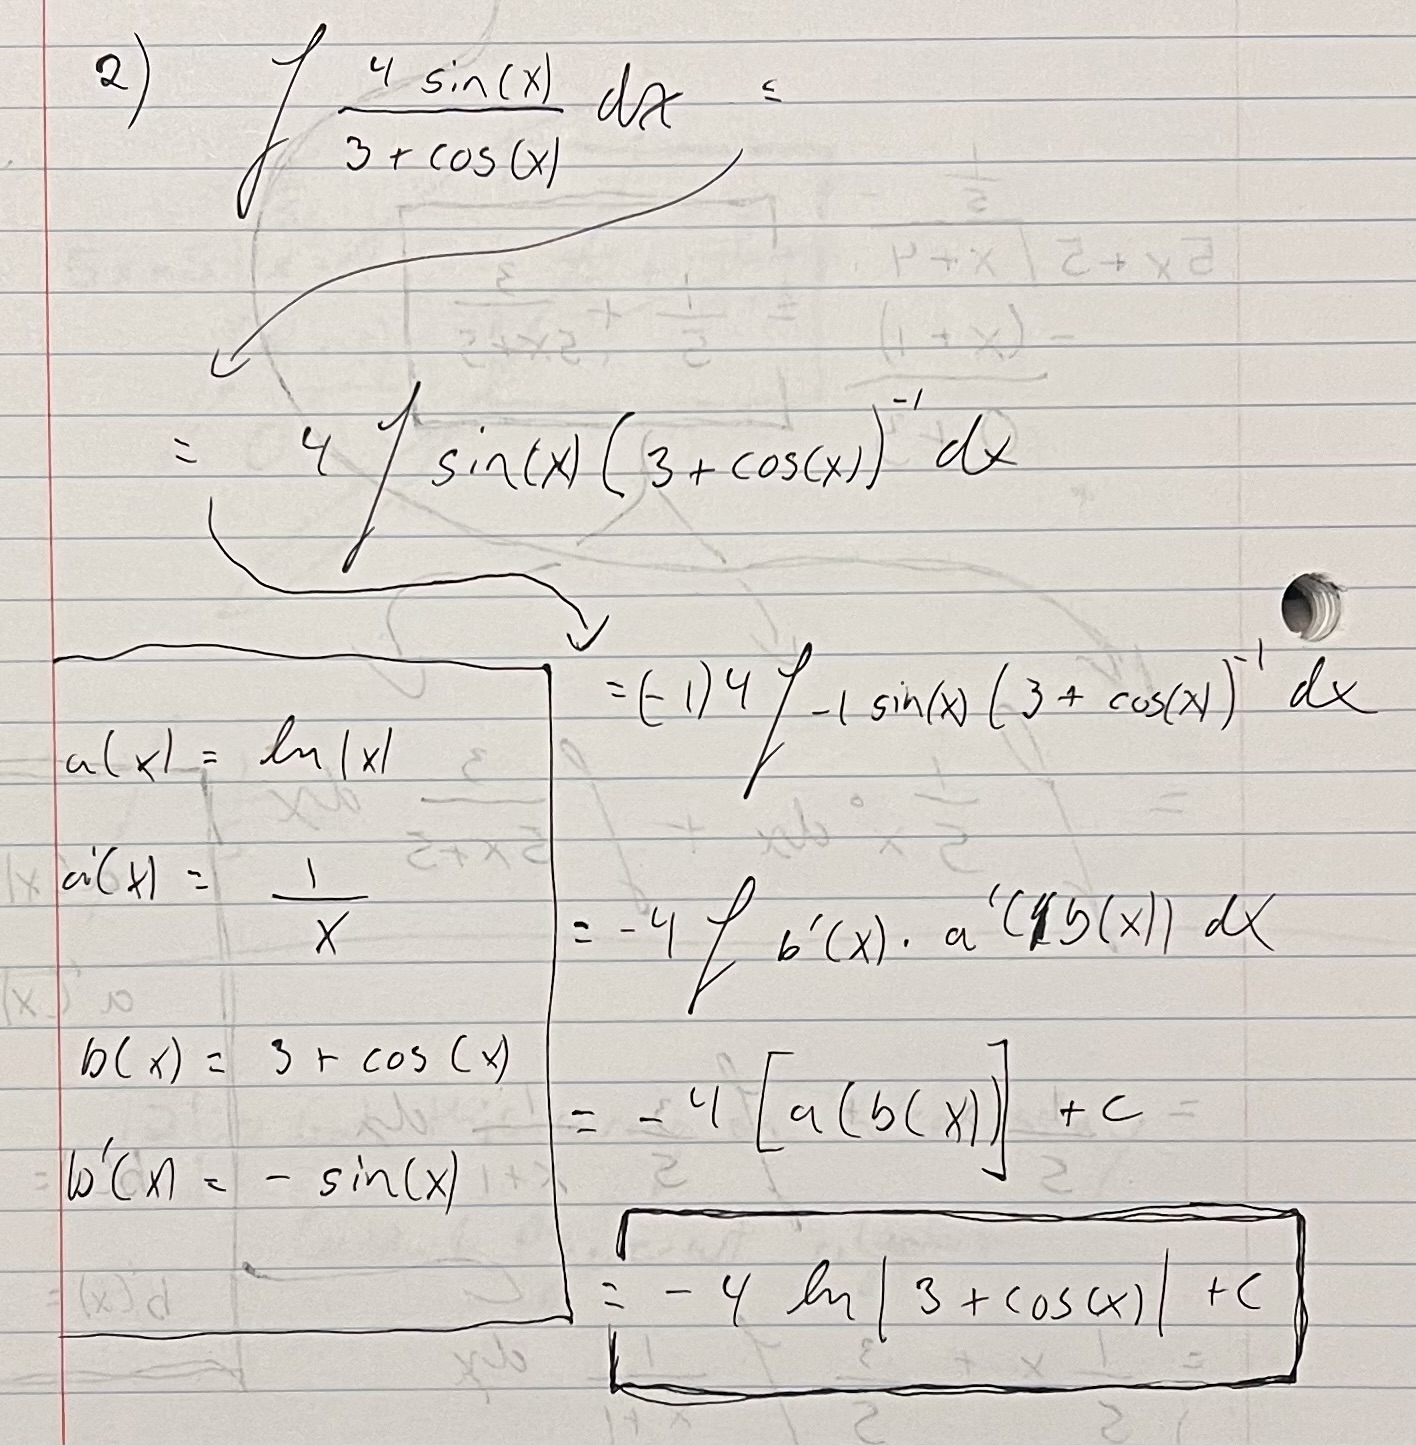 2) ∫ 4 sin(x) / 3 + cos(x) dx =
= 4 ∫ sin(x) (3 + cos(x))⁻¹ dx
= (-1) 4 ∫ -1 sin(x) (3 + cos(x))⁻¹ dx
a(x) = ln|x|
a'(x) = 1/x
= -4 ∫ b'(x) · a'(b(x)) dx
b(x) = 3 + cos(x)
= -4 [a(b(x))] + c
b'(x) = - sin(x)
= -4 ln|3 + cos(x)| + c